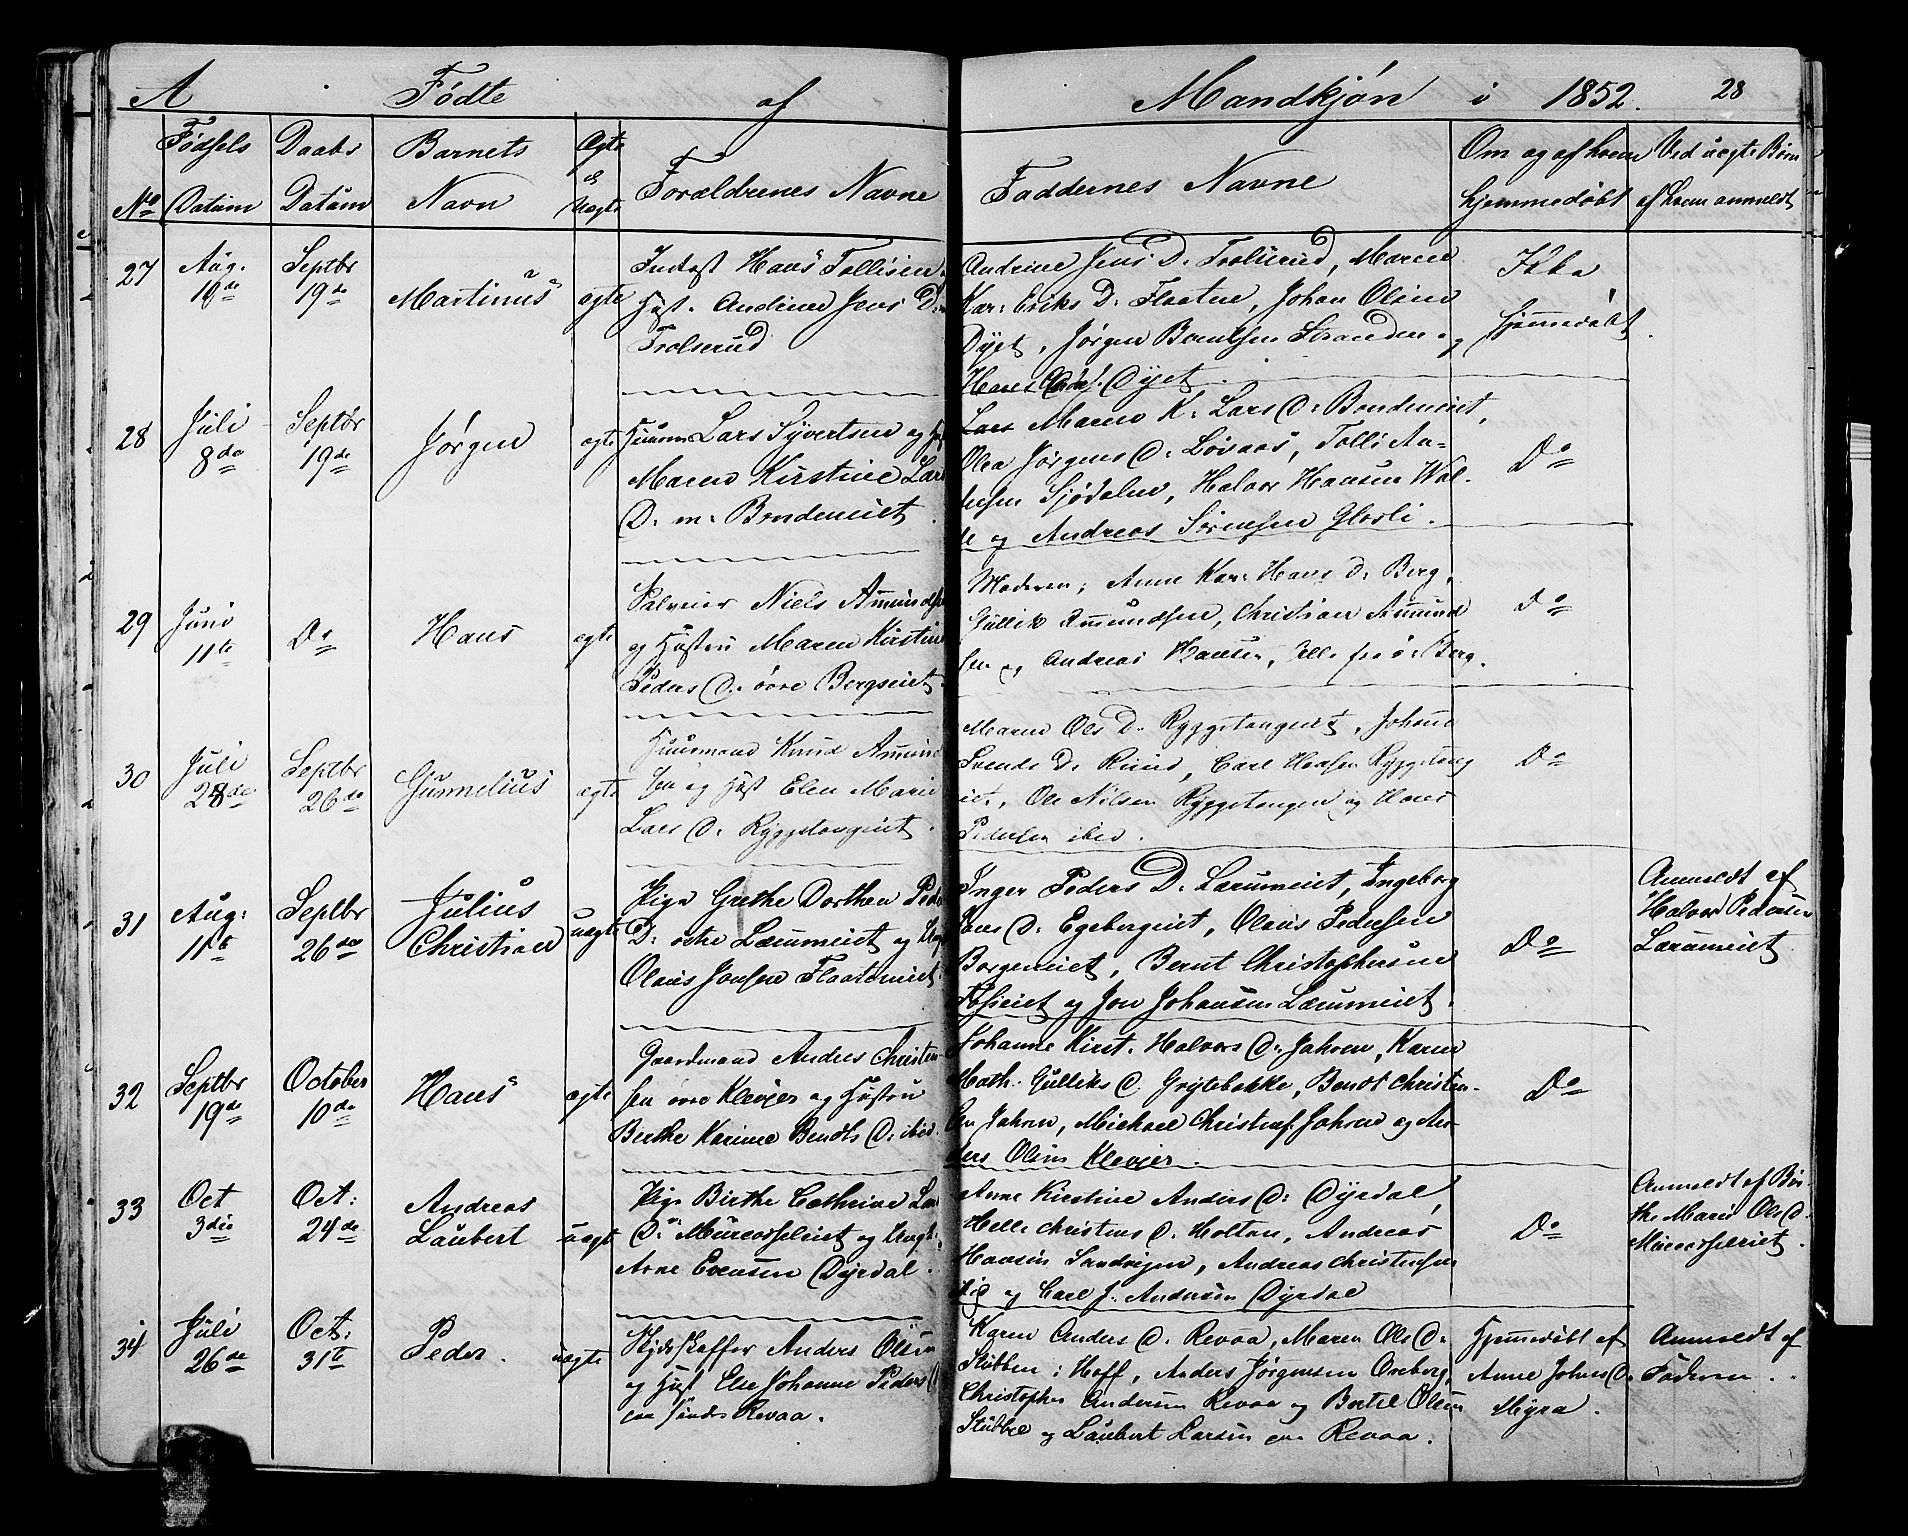 A Fødte af Mandkjøn i 1852. 28
Fødsels Daabs Barnets Ægte Om og af hvem Ved uægte Børn
No Datum Datum Navn & Uægte Forældrenes Navne Faddernes Navne hjemmedøbt af hvem anmeldt
27 Aug. 18de Septbr 19de Martinus ægte
Indst Hans Tollisen
Hust. Andrine Jens D.
Trolserud
Andrine Jens D. Trolserud, Maren
Kar: Eriks D: Flaaten, Johan Olsen
Dyet, Jørgen Berntsen Stranden og
Hans Dyet.
Ikke
hjemmedøbt.
28 Juli 8de Septbr 19de Jørgen ægte
Huusm Lars Syvertsen og
Maren Kirstine Lars
D: m: Bondeneiet.
Lars Maren K: Lars D: Bondeneiet,
Olea Jørgens D: Løvaas, Tolli An-
dersen Sjødalen, Halvor Hansen Wol-
de og Andreas Sørensen Glosli.
Do
29 Juni 11te Do Hans ægte
Niels Amunds
og Hustru Maren Kirstine
Peders D. øvre Bergseiet.
Moderen, Anne Kar: Hans D: Berg,
Gullik Amundsen, Christian Amund
sen og Andreas Hansen, alle fra ø: Berg.
Do
30 Juli 28de Septbr 26de Gunnelius ægte
Huusmand Knud Amund
sen og Hust Elen Marie
Lars D. Ryggetangeiet.
Maren Ols D. Ryggetangeiet, Johanne
Svends D. Ruud, Carl Hansen Ryggetang
eiet, Ole Nilsen Ryggetangen og Hans
Pedersen ibid.
Do
31 Aug: 11te Septbr 26de Julius Christian uægte
Pige Grethe Dorthea Peders
D: østre Lærumeiet og Ungk
Olaus Jonsen Flaateneiet.
Inger Peders D. Lærumeiet, Ingeborg
Hans D. Egebergeiet, Olaus Pedersen
Borgeneiet, Bernt Christophersen
Fosseiet og Jon Johansen Lærumeiet.
Do
Anmeldt af
Halvor Pedersen
Lærumeiet
32 Septbr 19de October 10de Hans ægte
Gaardmand Anders Christen-
sen øvre Klevjer og Hustru
Berthe Karine Bendts D: ibid.
Johanne Kirst. Halvors D: Jahren, Karen
Math. Gulliks D. Grytebakke, Bendt Christen-
sen Jahren, Michael Christens Jahren og An-
ders Olsen Klevjer.
Do
33 Oct 3die Oct: 24de Andreas Laubert uægt
Pige Birthe Cathrine Lars
D: Murcorsseleiet og Ungk.
Arne Evensen Dyrdal.
Anne Kirstine Anders D: Dyrdal,
Helle Christens D. Holtan, Andreas
Hansen Sandvigen, Andreas Christensen
Vig og Carl J. Andersen Dyrdal
Do
Anmeldt af Bir-
the Marie Ols D.
34 Juli 26de Oct: 31te Peder. uægte
Skydsskaffer Anders Olsen
og Hust Else Johanne Peders D
Revaa.
Karen Anders D. Revaa, Maren Ols D.
Stubben i Hoff, Anders Jørgensen Oreberg,
Christopher Andersen Revaa og Bertel Olsen
Stubben og Laubert Larsen Revaa.
Hjemmedøbt af
Anne Johns D.
Myra.
Anmeldt af
Faderen.